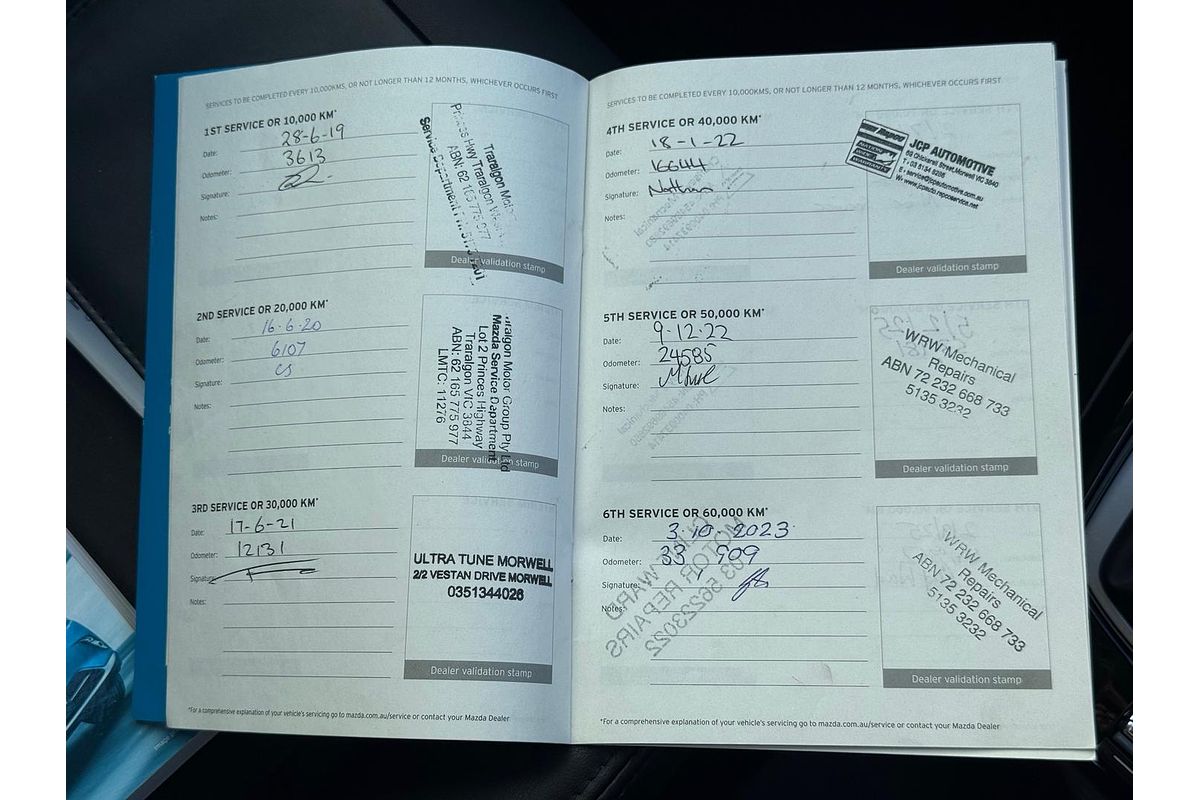 SERVICES TO BE COMPLETED EVERY 10,000KMS, OR NOT LONGER THAN 12 MONTHS, WHICHEVER OCCURS FIRST
1ST SERVICE OR 10,000 KM*
Date: 28-6-19
Odometer: 3613
Signature:
Notes:
Traralgon Motor
Princes Hwy Traralgon
ABN: 62 165 775 977
Service Department
Dealer validation stamp
2ND SERVICE OR 20,000 KM*
Date: 16-6-20
Odometer: 6107
Signature: CS
Notes:
Traralgon Motor Group Pty Ltd
Mazda Service Department
Lot 2 Princes Highway
Traralgon VIC 3844
ABN: 62 165 775 977
LMTC: 11276
Dealer validation stamp
3RD SERVICE OR 30,000 KM*
Date: 17-6-21
Odometer: 12131
Signature:
Notes:
ULTRA TUNE MORWELL
2/2 VESTAN DRIVE MORWELL
0351344026
Dealer validation stamp
*For a comprehensive explanation of your vehicle's servicing go to mazda.com.au/service or contact your Mazda Dealer
SERVICES TO BE COMPLETED EVERY 10,000KMS, OR NOT LONGER THAN 12 MONTHS, WHICHEVER OCCURS FIRST
4TH SERVICE OR 40,000 KM*
Date: 18-1-22
Odometer: 16644
Signature: Nathan
Notes:
Repco
NATION
WARRANTY
JCP AUTOMOTIVE
Street, Morwell VIC 3840
T: 03 5134 5286
E: service@jcpautomotive.com.au
W: www.jcpauto.reposervice.net
Dealer validation stamp
5TH SERVICE OR 50,000 KM*
Date: 9-12-22
Odometer: 24585
Signature:
Notes:
WRW Mechanical
Repairs
ABN 72 232 668 733
5135 3232
Dealer validation stamp
6TH SERVICE OR 60,000 KM*
Date: 3.10.2023
Odometer: 33 909
Signature:
Notes:
MOTOR REPAIRS
03 56223022
WRW Mechanical
Repairs
ABN 72 232 668 733
5135 3232
Dealer validation stamp
*For a comprehensive explanation of your vehicle's servicing go to mazda.com.au/service or contact your Mazda Dealer